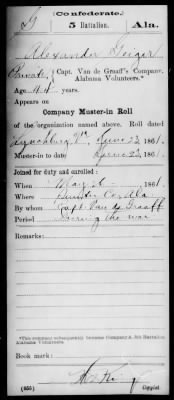 (Confederate.)
G 5 Battalion. Ala.
Alexander Geiger
Private, Capt. Van de Graaff's Company,
Alabama Volunteers.*
Age years.
Appears on
Company Muster-in Roll
of the organization named above. Roll dated
Lynchburg Va, June 23, 1861.
Muster-in to date June 23, 1861.
Joined for duty and enrolled:
When May 26, 1861.
Where Sumter Co Ala
By whom Capt Van de Graaff
Period During the war
Remarks:
*This company subsequently became Company A, 5th Battalion
Alabama Volunteers.
Book mark:
(655) Copyist.